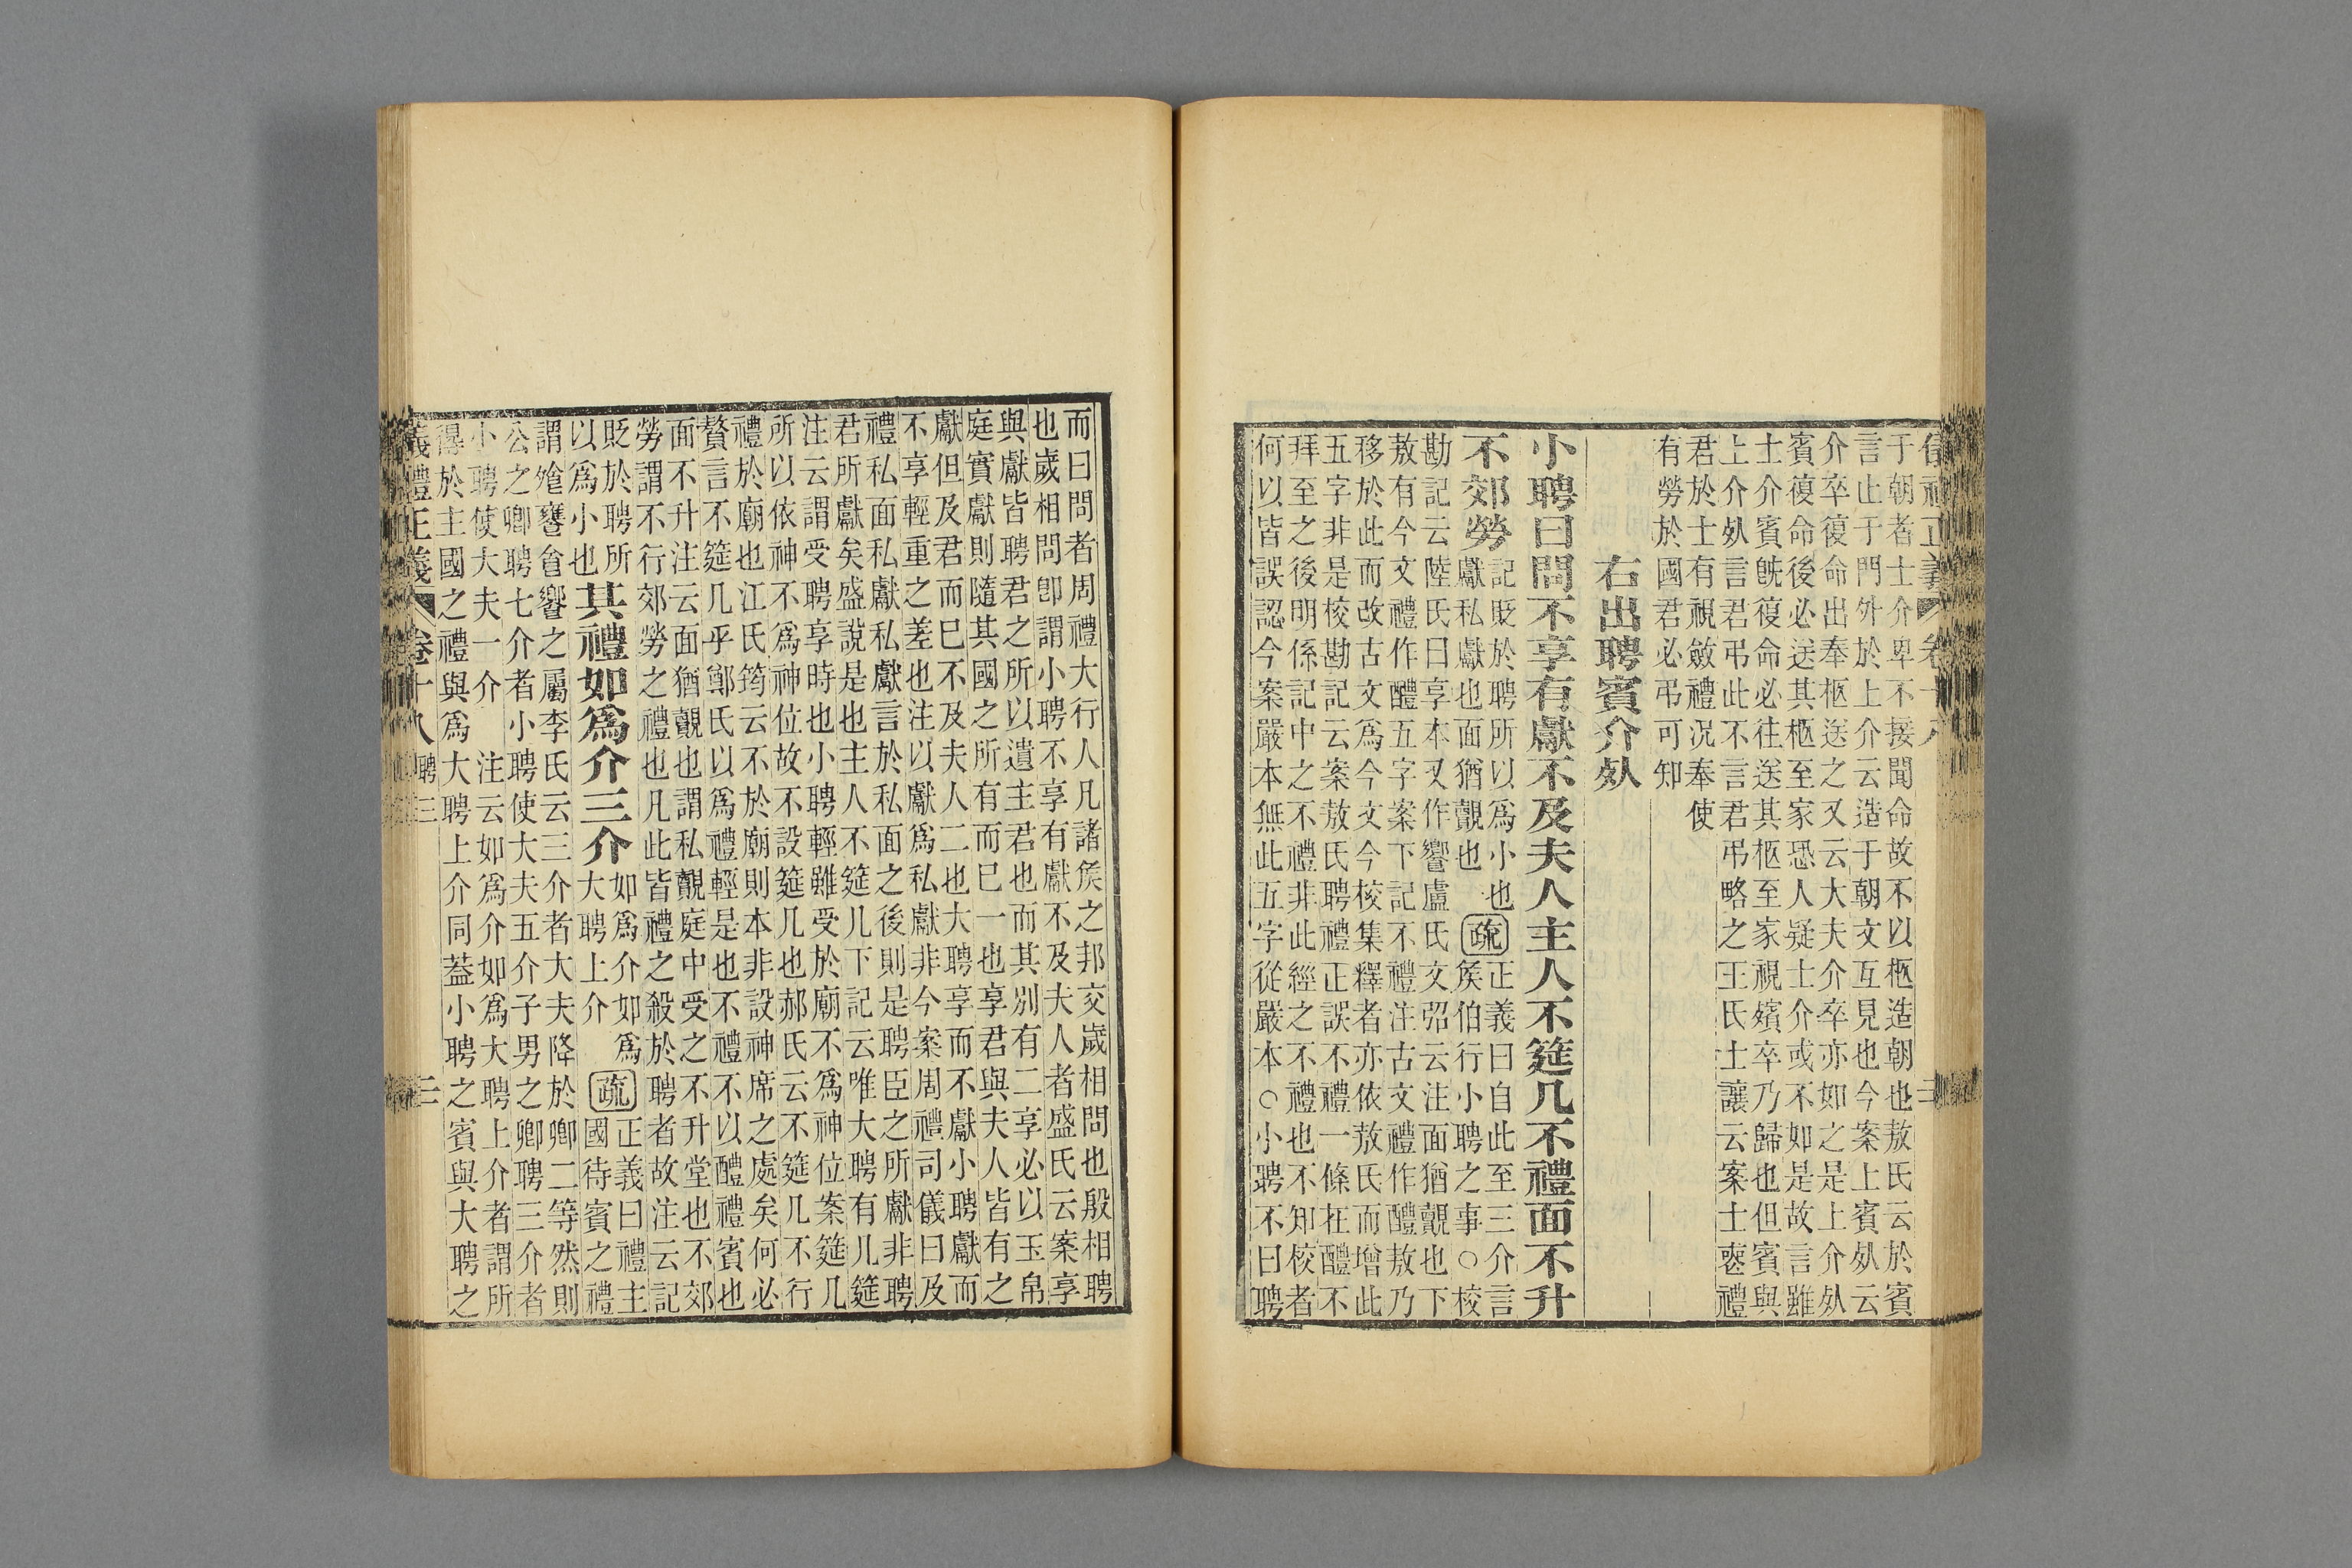 于朝者士介卑不接聞命故不以柩造朝也敖氏云於賓
言止于門外於上介云造于朝文互見也今案上賓㱙云
介卒復命出奉柩送之又云大夫介卒亦如之是上介㱙
賓復命後必送其柩至家恐人疑士介或不如是故言雖
士介賓旣復命必往送其柩至家視殯卒乃歸也但賓與
上介㱙言君弔此不言君弔略之王氏士讓云案士喪禮
君於士有視斂禮况奉使
有勞於國君必弔可知
右出聘賓介㱙
小聘曰問不享有獻不及夫人主人不筵几不禮面不升
不郊勞
記貶於聘所以爲小也
獻私獻也面猶覿也
疏
正義曰自此至三介言
侯伯行小聘之事○校
勘記云陸氏曰享本又作饗盧氏文弨云注面猶覿也下
敖有今文禮作醴五字案下記不禮注古文禮作醴敖乃
移於此而改古文爲今文今校集釋者亦依敖氏而增此
五字非是校勘記云案敖氏聘禮正誤不禮一條在醴不
拜至之後明係記中之不禮非此經之不禮也不知校者
何以皆誤認今案嚴本無此五字從嚴本○小聘不曰聘
而曰問者周禮大行人凡諸侯之邦交歲相問也殷相聘
也歲相問卽謂小聘不享有獻不及夫人者盛氏云案享
與獻皆聘君之所以遺主君也而其別有二享必以玉帛
庭實獻則隨其國之所有而已一也享君與夫人皆有之
獻但及君而已不及夫人二也大聘享而不獻小聘獻而
不享輕重之差也注以獻爲私獻非今案周禮司儀曰及
禮私面私獻私獻言於私面之後則是聘臣之所獻非聘
君所獻矣盛說是也主人不筵几下記云唯大聘有几筵
注云謂受聘享時也小聘輕雖受於廟不爲神位案筵几
所以依神不爲神位故不設筵几也郝氏云不筵几不行
禮於廟也江氏筠云不於廟則本非設神席之處矣何必
贅言不筵几乎鄭氏以爲禮輕是也不禮不以醴禮賓也
面不升注云面猶覿也謂私覿庭中受之不升堂也不郊
勞謂不行郊勞之禮也凡此皆禮之殺於聘者故注云記
貶於聘所
以爲小也
其禮如爲介三介
如爲介如爲
大聘上介
疏
正義曰禮主
國待賓之禮
謂飱饔食饗之屬李氏云三介者大夫降於卿二等然則
公之卿聘七介者小聘使大夫五介子男之卿聘三介者
小聘使大夫一介 注云如爲介如爲大聘上介者謂所
得於主國之禮與爲大聘上介同蓋小聘之賓與大聘之
儀禮正義 卷十八 聘三 三